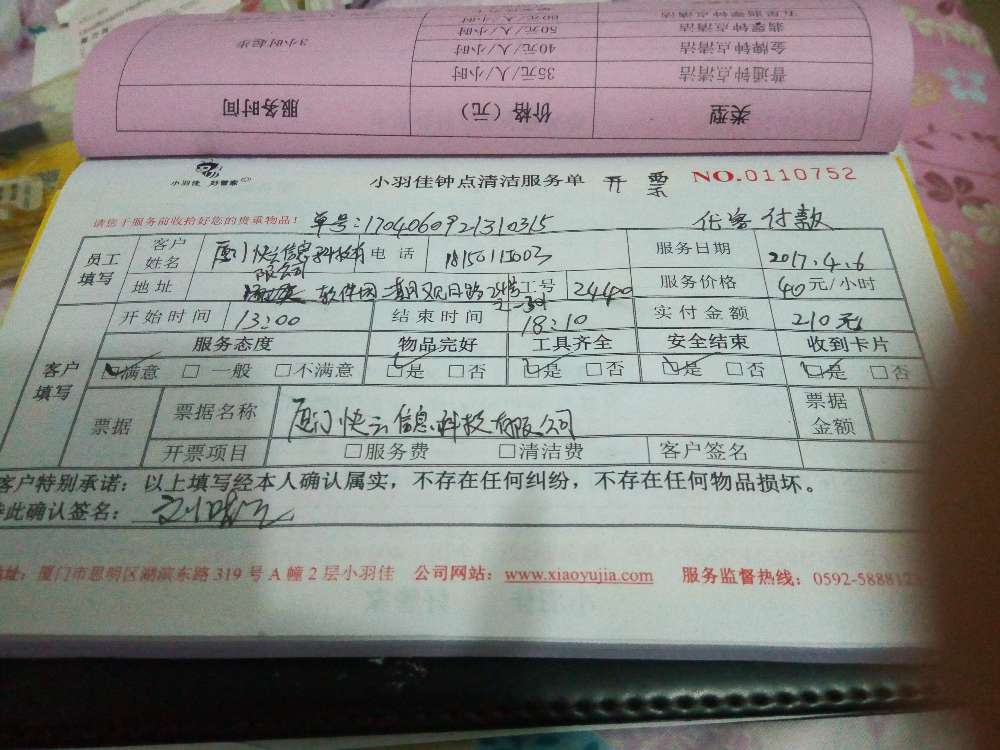 类型 价格（元） 服务时间
普通钟点清洁 35元/人/小时
金牌钟点清洁 40元/人/小时 3小时起步
翡翠钟点清洁 50元/人/小时
60元/人/小时
小羽佳 好管家
小羽佳钟点清洁服务单 开票 NO.0110752
请您于服务前收拾好您的贵重物品！ 单号:1704060921310315 代客付款
员工填写 客户姓名 厦门快云信息科技有限公司 电话 服务日期 2017.4.6
地址 软件园 观日路 工号 2440 服务价格 40元/小时
开始时间 13:00 结束时间 18:10 实付金额 210元
客户填写 服务态度 物品完好 工具齐全 安全结束 收到卡片
☑满意 □一般 □不满意 ☑是 □否 ☑是 □否 ☑是 □否 ☑是 □否
票据 票据名称 厦门快云信息科技有限公司 票据金额
开票项目 □服务费 □清洁费 客户签名
客户特别承诺：以上填写经本人确认属实，不存在任何纠纷，不存在任何物品损坏。
此确认签名：
地址：厦门市思明区湖滨东路319号A幢2层小羽佳 公司网站：www.xiaoyujia.com 服务监督热线：0592-5888123